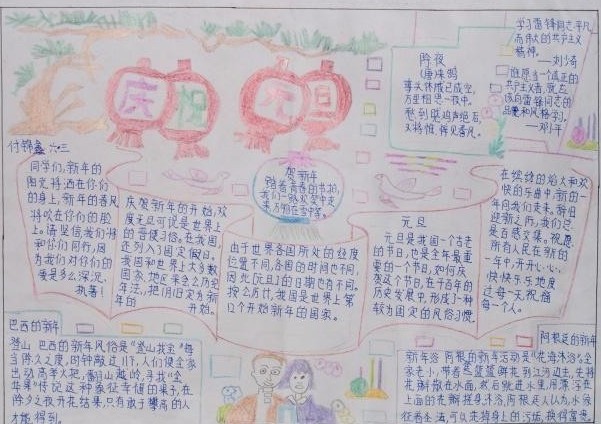 学习雷锋同志平凡
而伟大的共产主义
精神。
——刘少奇
谁愿当个真正的
共产主义者,就应
该向雷锋同志的
品德和风格学习。
——邓小平
除夜
(唐)来鹄
事关休戚已成空,
万里相思一夜中。
愁到晓鸡声绝后,
又将憔悴见春风。
庆祝元旦
付锦鑫 六.三
同学们,新年的
阳光将洒在你们
的身上,新年的春风
将吹在你们的脸
上。请坚信我们将
和你们同行,因
为我们对你们的
爱是多么深沉,
执著!
庆贺新年的开始,欢
度元旦可说是世界上
的普便习俗。在我国
还列入了固定假日。
我国和世界上大多数
国家、地区采么历纪
年法,把1月1日定为新年
的开始。
贺新年
踏着青春的节拍,
我们一路欢笑中走
来
由于世界各国所处的经度
位置不同,各国的时间也不同,
因此「元旦」的日期也有不同。
按么历计,我国是世界上第
12个开始新年的国家。
元旦
元旦是我国一个古老
的节日,也是全年最重
要的一个节日,如何庆
贺这个节日,在千百年的
历史发展中,形成了一种
较为固定的风俗习惯。
在缤纷的焰火和欢
快的乐曲中,新的一
年向我们走来。辞旧
迎新之际,我们总
是百感交集。祝愿
所有人民在新的
一年中,开开心心,
快快乐乐地度
过每一天,祝福
每一个人。
巴西的新年
登山 巴西的新年风俗是“登山找金”每
当除夕之度,时钟敲过川下,人们便全家
出动高举火把,翻山越岭,寻找“金
华果”传记这种象征幸福的果子,在
除夕之夜开花结果,只有敢于攀高的人
才能得到。
阿根廷的新年
新年浴 阿根的新年活动是“花海沐浴”。全
家老小,带着篮篮鲜花到江河边去,先将
花瓣撒在水面,然后跳进水里,用漂浮在
上面的花瓣搓身沐浴,阿根廷人认为,水象
征着生活,可以洗掉身上的污垢,换得富意。